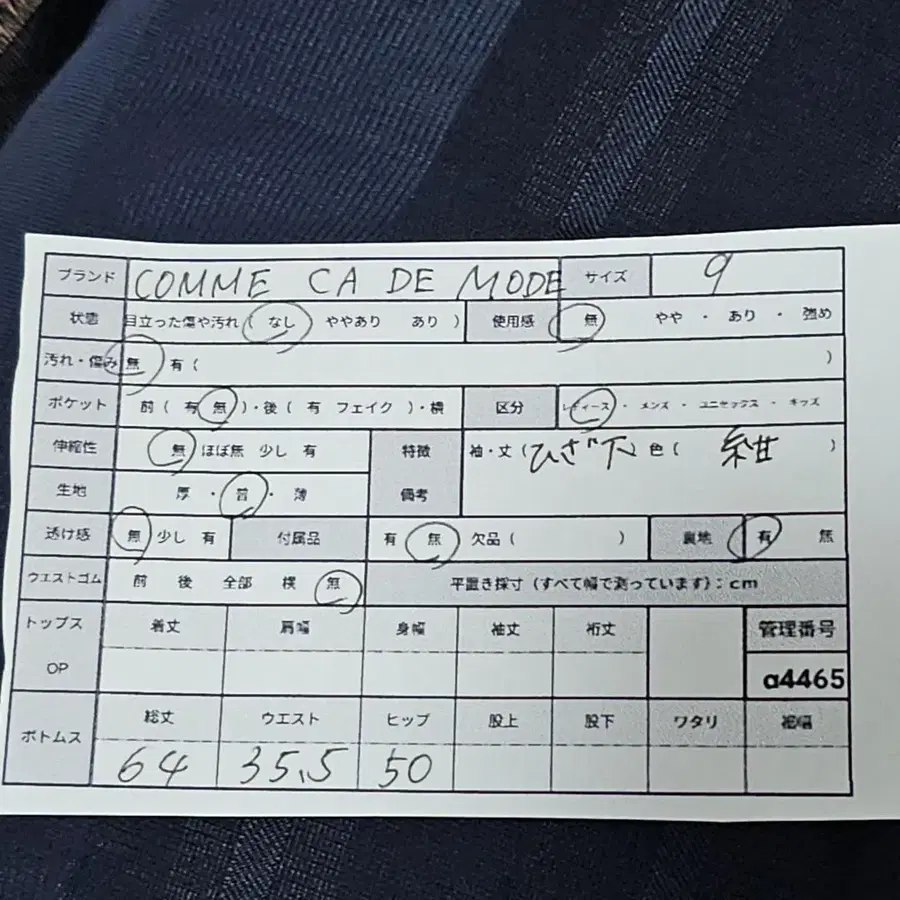 ブランド COMME CA DE MODE サイズ 9
状態 目立った傷や汚れ ( なし ややあり あり ) 使用感 無 やや ・ あり ・ 強め
汚れ・傷み 無 有 ( )
ポケット 前 ( 有 無 ) ・ 後 ( 有 フェイク ) ・ 横 区分 レディース ・ メンズ ・ ユニセックス ・ キッズ
伸縮性 無 ほぼ無 少し 有 特徴 袖・丈 ( ひざ下 色 ( 紺 )
生地 厚 ・ 普 ・ 薄 備考
透け感 無 少し 有 付属品 有 無 欠品 ( ) 裏地 有 無
ウエストゴム 前 後 全部 横 無 平置き採寸 (すべて幅で測っています) : cm
トップス 着丈 肩幅 身幅 袖丈 裄丈 管理番号
OP a4465
ボトムス 総丈 ウエスト ヒップ 股上 股下 ワタリ 裾幅
64 35.5 50